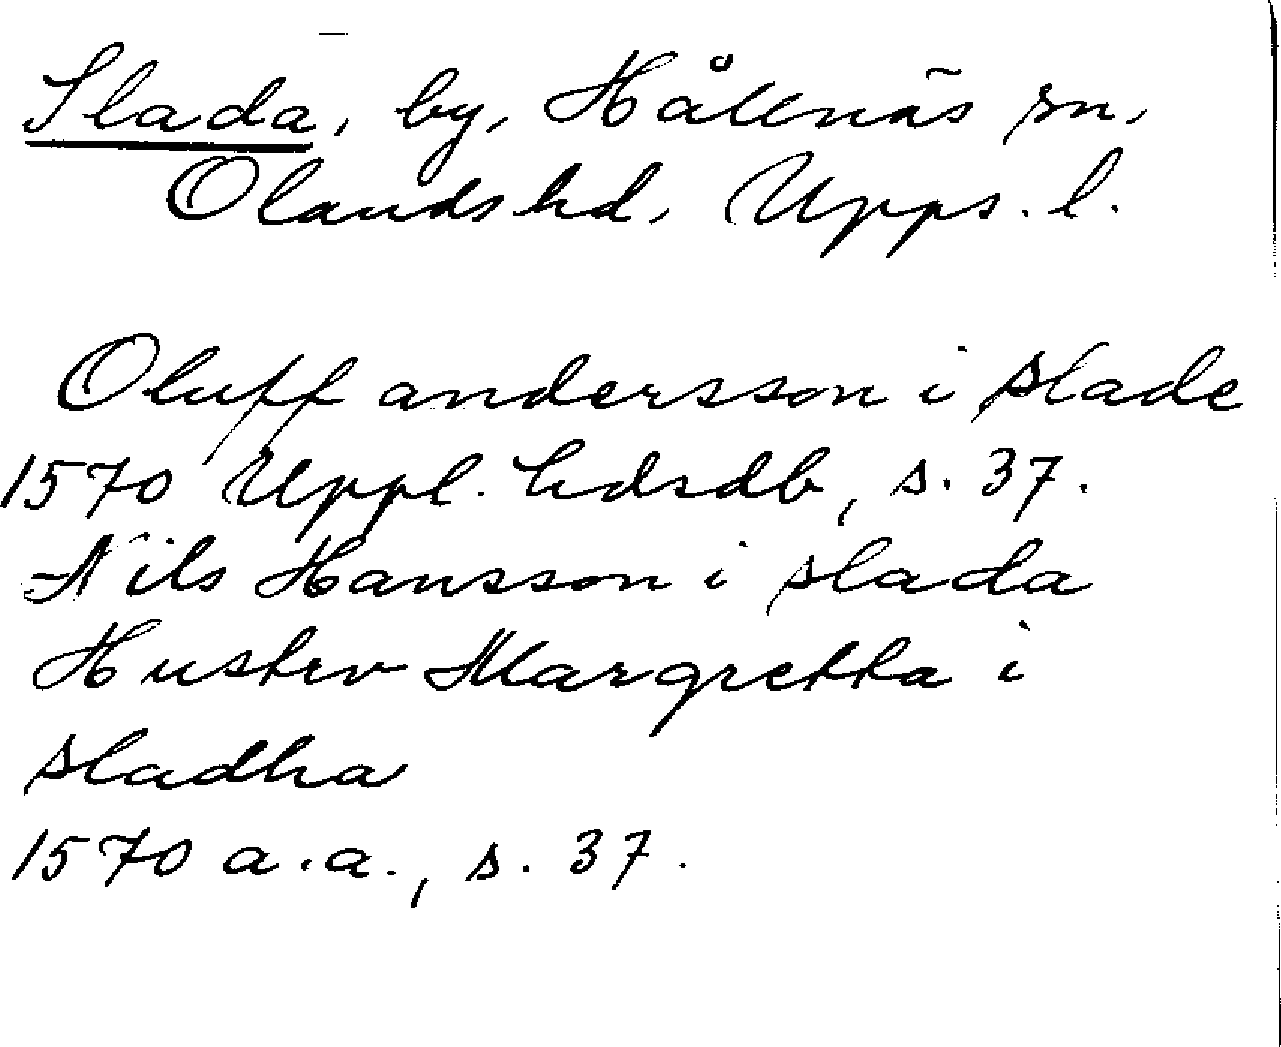 Slada, by, Hållnäs sn,
Olands hd, Upps. l.
Oluff andersson i slade
1570 Uppl. hdsdb, s. 37.
Nils Hansson i slada
Hustrv Margretta i
sladha
1570 a.a., s. 37.